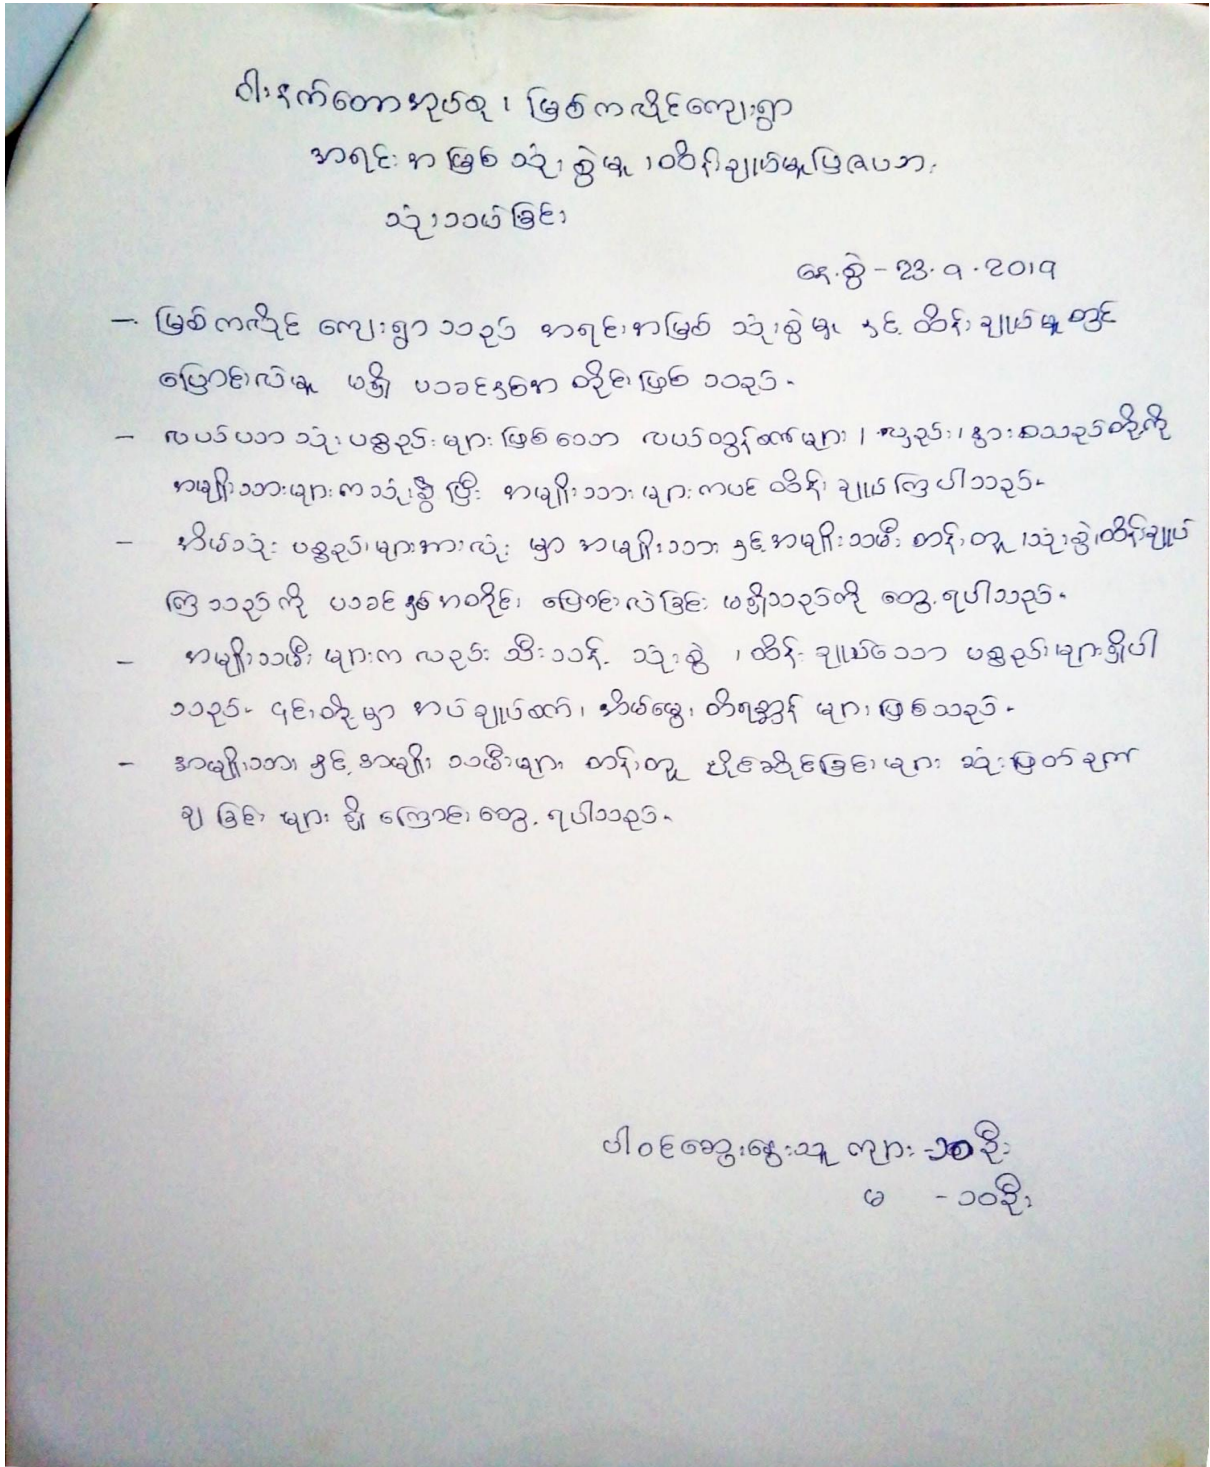 ဝါးနက်တောအုပ်စု၊ မြစ်ကလိုင်ကျေးရွာ
အရင်းအမြစ် သုံးစွဲမှု၊ ထိန်းချုပ်မှုပြဇယား
သုံးသပ်ခြင်း
နေ့စွဲ - 23.9.2019
- မြစ်ကလိုင် ကျေးရွာသည် အရင်းအမြစ် သုံးစွဲမှု နှင့် ထိန်းချုပ်မှုတွင်
ပြောင်းလဲမှု မရှိ ယခင်နှစ်အတိုင်းဖြစ်သည်။
- လယ်ယာသုံးပစ္စည်းများဖြစ်သော လယ်ထွန်စက်များ၊ လှည်း၊ နွားစသည်တို့ကို
အမျိုးသားများကသုံးစွဲပြီး အမျိုးသားများကပင် ထိန်းချုပ်ကြပါသည်။
- အိမ်သုံးပစ္စည်းများအားလုံးမှာ အမျိုးသားနှင့်အမျိုးသမီး တန်းတူ သုံးစွဲ၊ထိန်းချုပ်
ကြသည်ကို ယခင်နှစ်အတိုင်း ပြောင်းလဲခြင်း မရှိသည်ကို တွေ့ရပါသည်။
- အမျိုးသမီးများက လည်း သီးသန့် သုံးစွဲ၊ ထိန်းချုပ်သော ပစ္စည်းများရှိပါ
သည်။ ၎င်းတို့မှာ အပ်ချုပ်စက်၊ အိမ်မွေးတိရစ္ဆာန်များဖြစ်သည်။
- အမျိုးသားနှင့်အမျိုးသမီးများ တန်းတူ ပိုင်ဆိုင်ခြင်းများ ဆုံးဖြတ်ချက်
ချခြင်းများရှိကြောင်းတွေ့ရပါသည်။
ပါဝင်ဆွေးနွေးသူ ကျား - ၁၀ဦး
မ - ၁၀ဦး